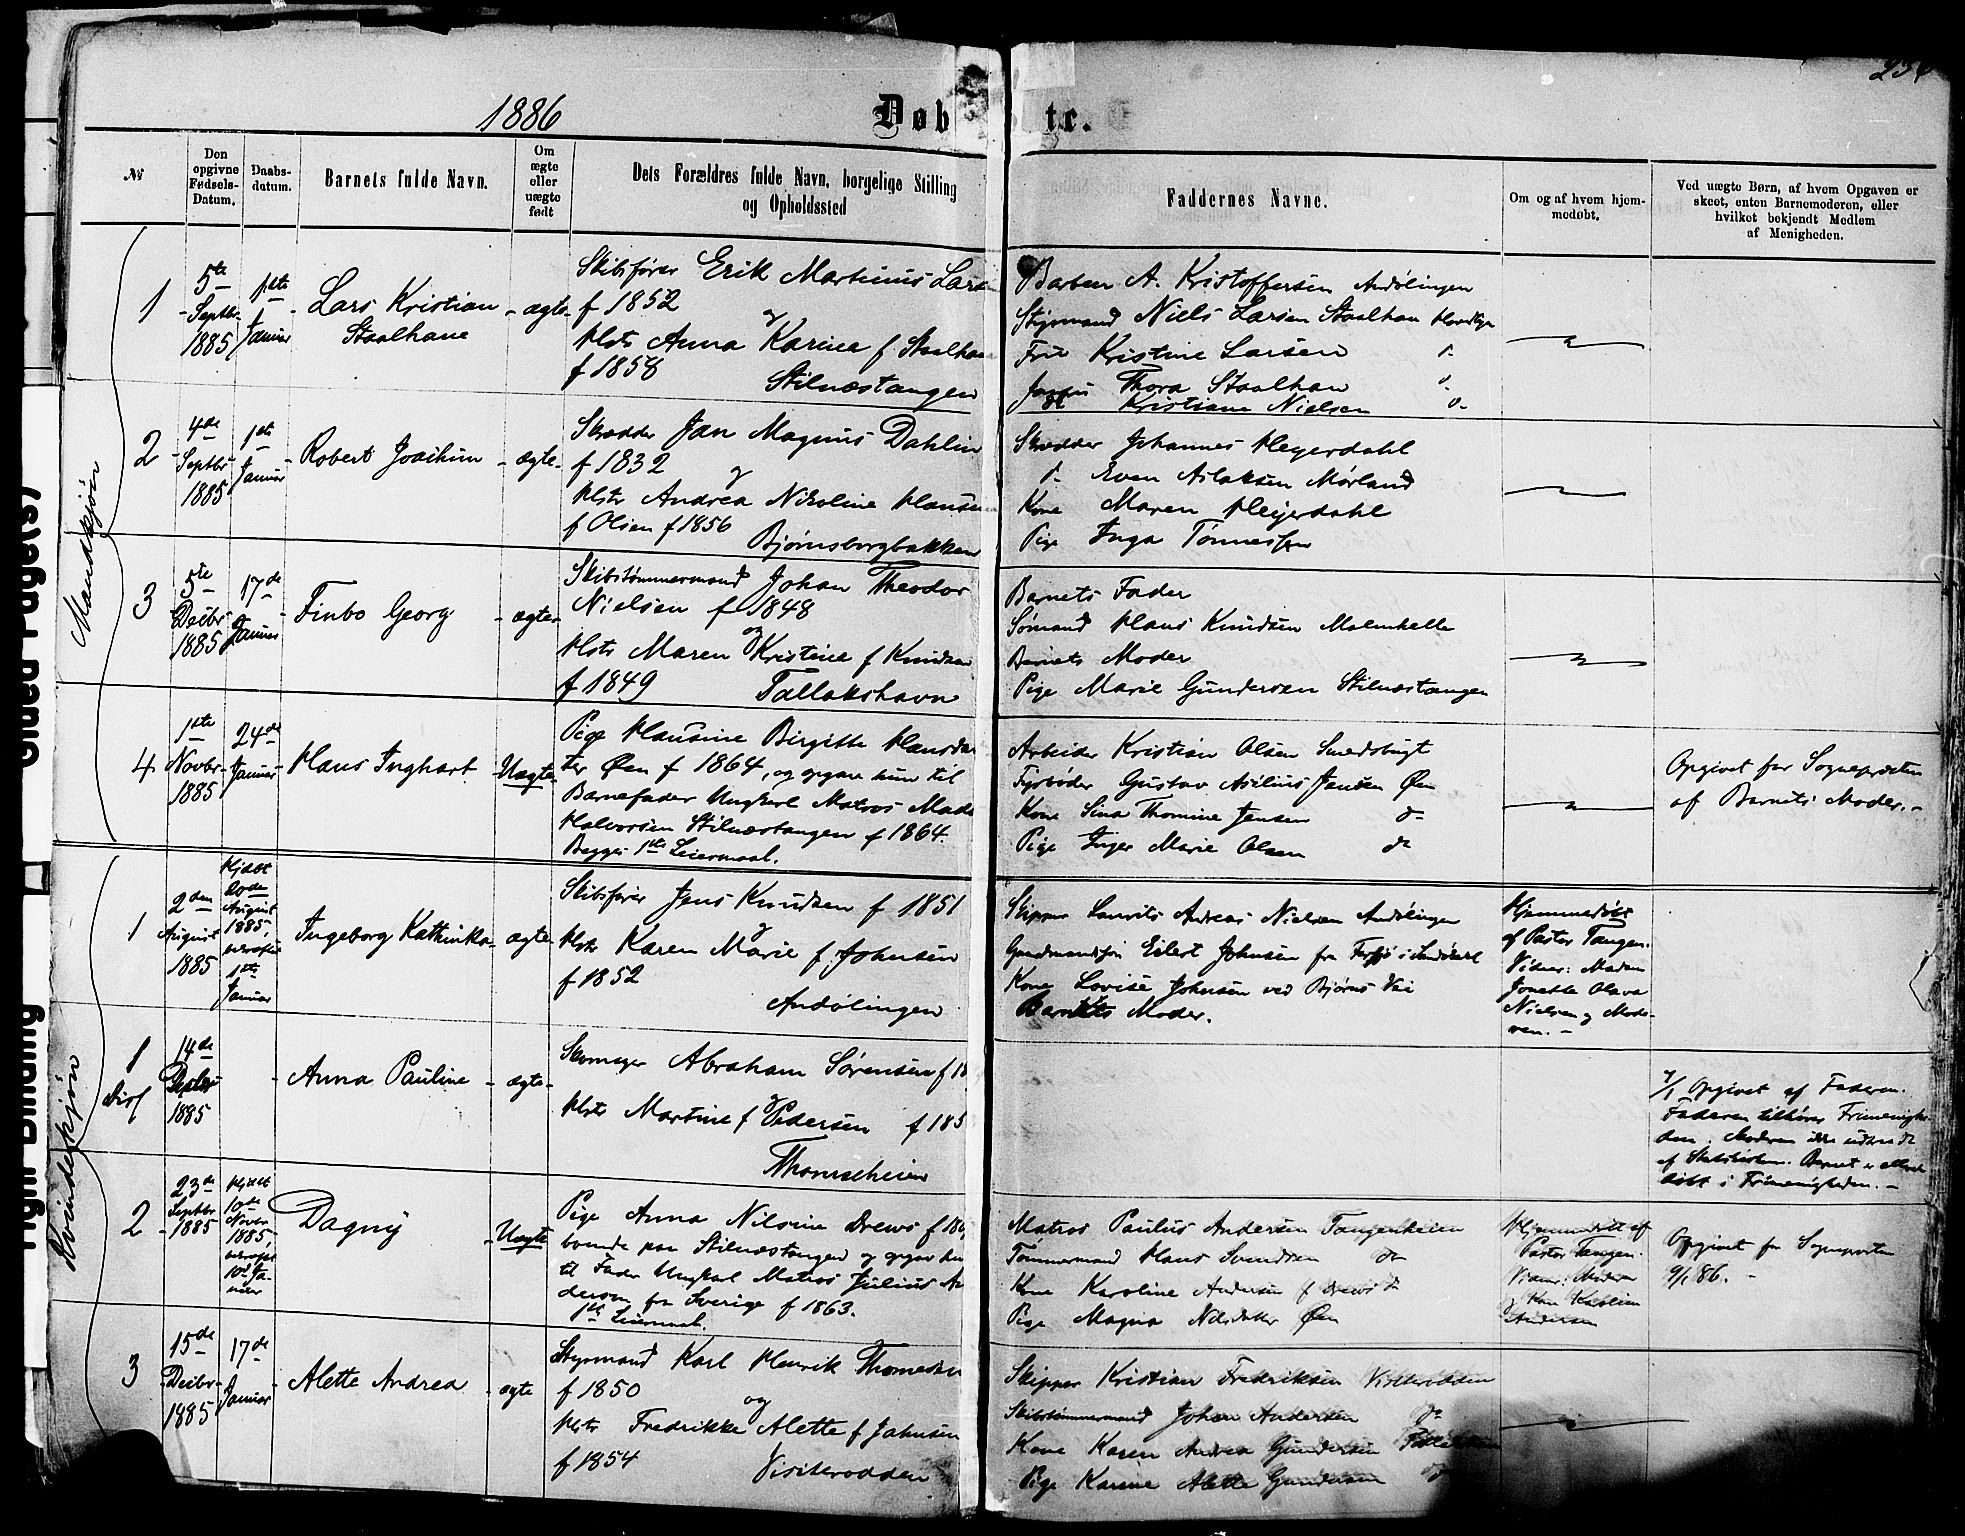 1886
Døb
tc.
№
Den opgivne Fødsels-Datum.
Daabs-datum.
Barnets fulde Navn.
Om ægte eller uægte født
Dets Forældres fulde Navn, borgelige Stilling
og Opholdssted
Faddernes Navne.
Om og af hvem hjem-
medøbt.
Ved uægte Børn, af hvem Opgaven er
skeet, enten Barnemoderen, eller
hvilket bekjendt Medlem
af Menigheden.
Mandkjøn
1
5te Septbr 1885
1ste Januar
Lars Kristian
Staalhane
ægte
Skibsfører Erik Martinus Lars
f 1852
og
Hstr Anna Karine f Staalhan
f 1858 Stilnæstangen
Barben A. Kristoffersen Andølingen
Styrmand Niels Larsen Staalhan
Kristine Larsen
Thora Staalhan
Kristiane Nielsen
2
4de Septbr 1885
1ste Januar
Robert Joachim
ægte
Skrædder Jan Magnus Dahlin
f 1832
og
Hstr Andrea Nikoline Hansen
f Olsen f 1856
Bjørnsborgbakken
Skrædder Johannes Heyerdahl
d. Even Aslaksen Mørland
Kone Maren Heyerdahl
Pige Inga Tønnessen
3
5te Decbr 1885
17de Januar
Finbo Georg
ægte
Skibstømmermand Johan Theodor
Nielsen f 1848
og
Hstr Maren Kristine f Knudsen
f 1849 Tallakshavn
Barnets Fader
Sømand Hans Knudsen Malmhelle
Barnets Moder
Pige Marie Gundersen Stilnæstangen
4
1ste Novbr 1885
24de Januar
Hans Inghart
Uægte
Pige Hansine Birgitte Hansdat
ter Øen f 1864, og opgav hun til
Barnefader Ungkarl Matros Mads
Halvorsen Stilnæstangen f 1864.
Begges 1ste Leiermaal.
Arbeider Kristian Olsen Smedsbugt
Fyrbøder Gustav Asilius Jansen Øen
Kone Sina Thomine Jensen do
Pige Inger Marie Olsen do
Opgivet for Sognepresten
af Barnets Moder.
Kvindekjøn
1
2den August 1885
Hjdøbt
August
1885,
1ste
Januar
Ingeborg Kathinka
ægte
Skibsfører Jens Knudsen f 1851
og
Hstr Karen Marie f. Johnsen
f 1852
Andølingen
Skipper Laurits Andreas Nielsen Andølingen
Eilert Johnsen fra
Kone Lovise Johnsen ved Bjørns Vei
Barnets Moder.
Hjemmedøbt
af Pastor Tangen.
Vidner: Madam
Jonette Olava
Nielsen og Mode-
ren.
1
14de
1885
Anna Pauline
ægte
Skomager Abraham Sørensen f 18
og
Hstr Martine f Pedersen f 185
Thomesheien
7/1 Opgivet af Faderen.
Faderen tilhører Frimenighe-
den. Moderen ikke udtraadt
af Statskirken. Barnet er allerede
døbt i Frimenigheden.
2
23de Septbr 1885
Hjdøbt
10de
Novbr
1885
10de Ja-
nuar
Dagny
Uægte
Pige Anna Nilsine Drews f 186
boende paa Stilnæstangen og opgav hun
til Fader Ungkarl Matros Julius An
derson fra Sverige f 1863.
1ste Leiermaal.
Matros Paulus Andersen Tangenheien
Tømmermand Hans Svendsen do
Kone Karoline Andersen f Drews do
Pige Magna Nilsdatter Øen
Hjemmedøbt af
Pastor Tangen.
Vidner: Moderen
Kone Karoline
Andersen
Opgivet for Sognepresten
9/1 86.
3
15de Decbr 1885
17de Januar
Alette Andrea
ægte
Styrmand Karl Henrik Thomesen
f 1850
og
Hstr Fredrikke Alette f Johnsen
f 1854 Visiterodden
Skipper Kristian Fredriksen Visiterodden
Skibstømmermand Johan Andersen do
Kone Karen Andrea Gundersen
Pige Karine Alette Gundersen do